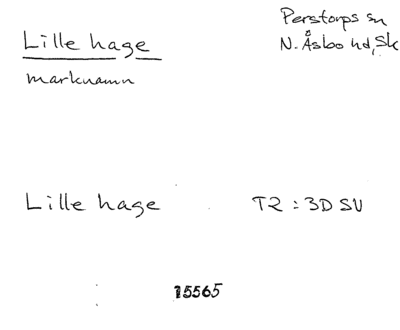 Lille hage
Perstorps sn
N. Åsbo hd, Sk
marknamn
Lille hage T2 : 3D SV
15565